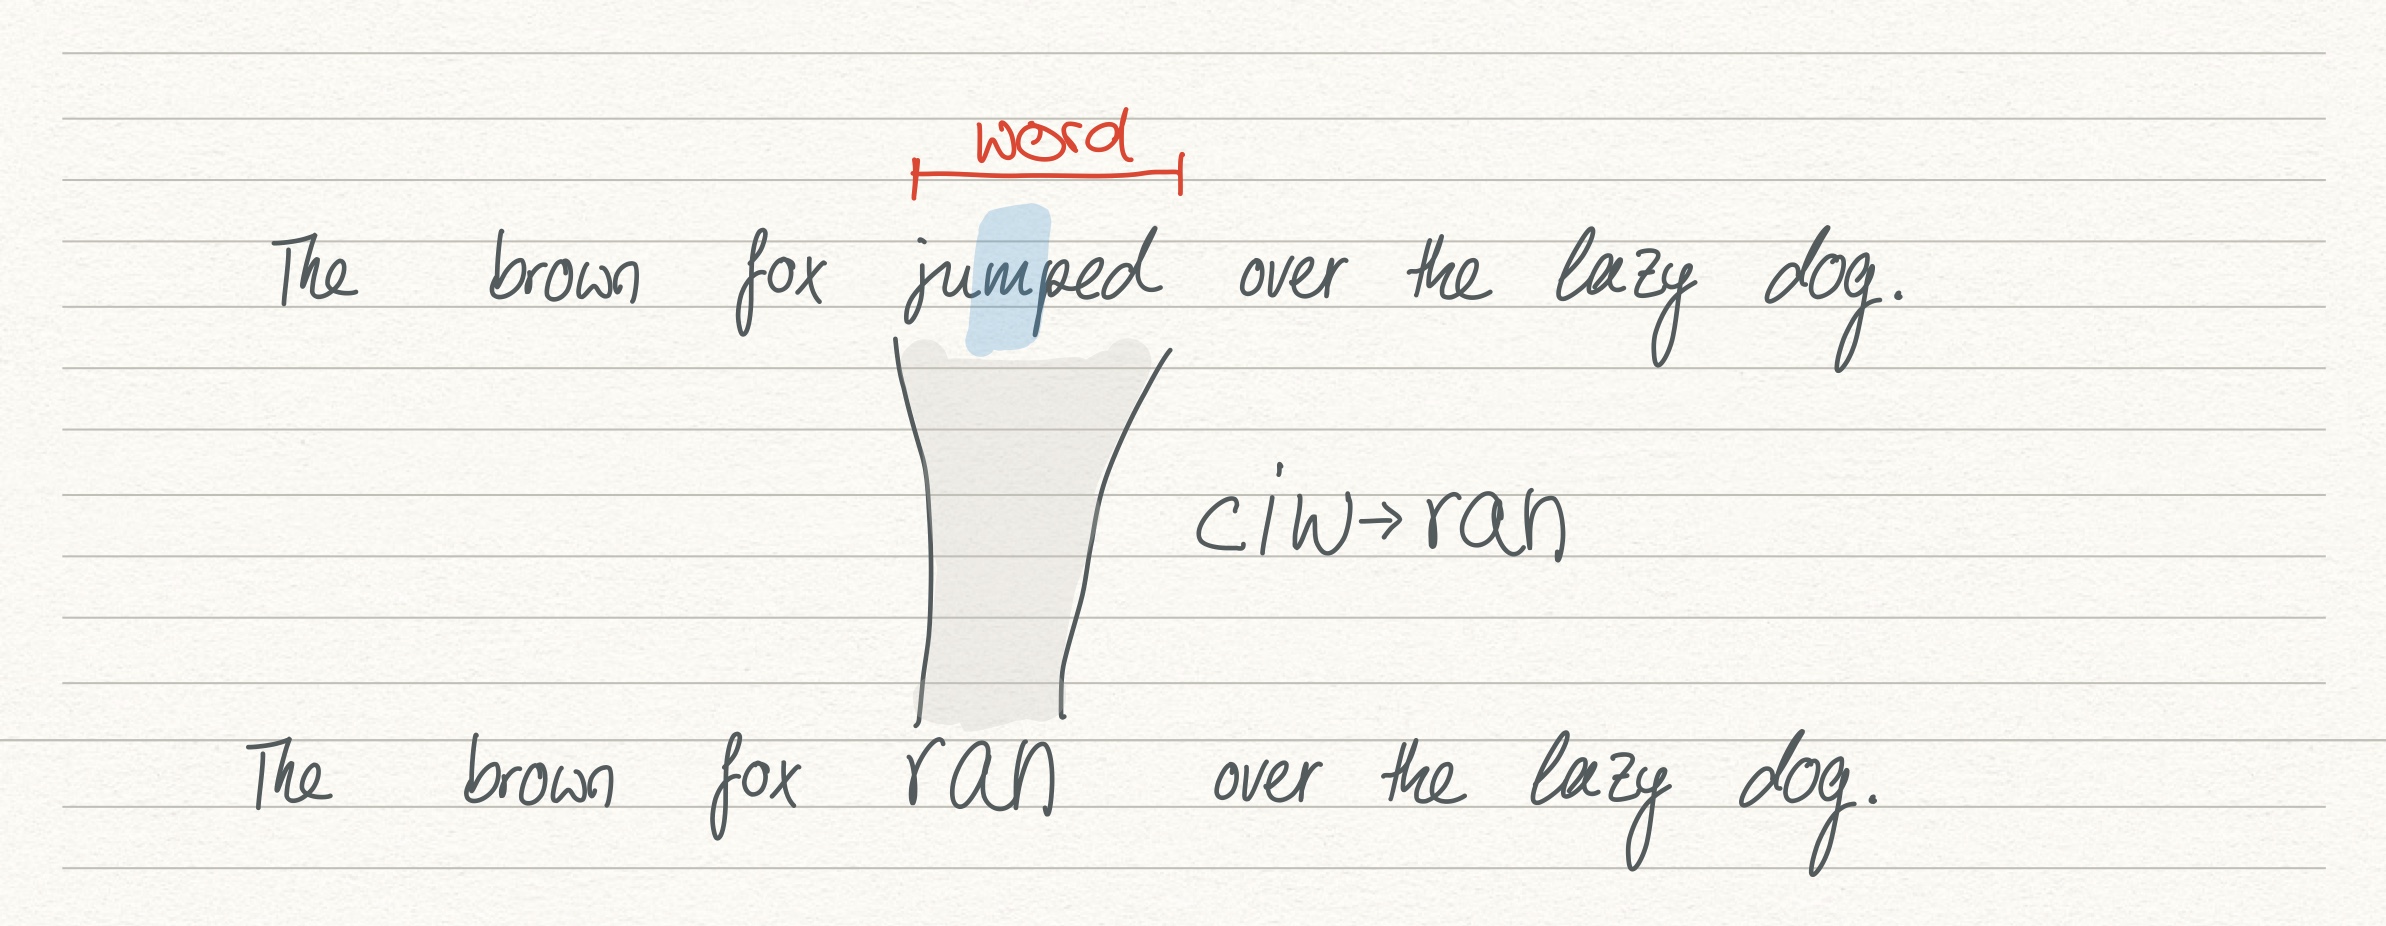 word
The brown fox jumped over the lazy dog.
ciw→ran
The brown fox ran over the lazy dog.